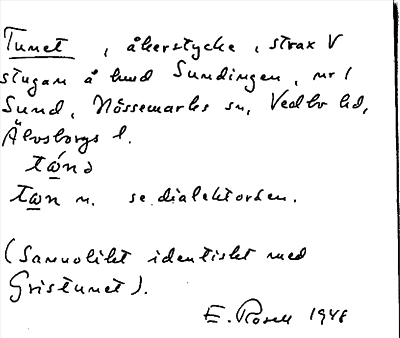 Tunet, åkerstycke, strax V
stugan å hmd Sundingen, nr 1
Sund, Nössemarks sn, Vedbo hd,
Älvsborgs l.
tⱥ́nə
tⱥn n. se dialektorden.
(Sannolikt identiskt med
Gristunet).
E. Rosell 1948